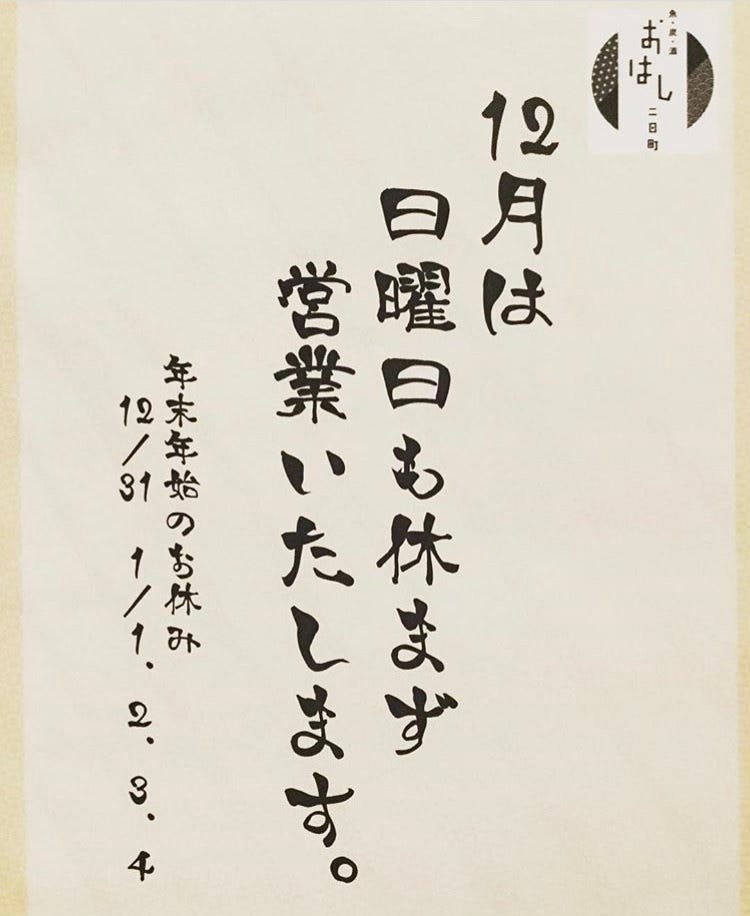 魚・炭・酒
おはし
二日町
12月は
日曜日も休まず
営業いたします。
年末年始のお休み
12/31 1/1. 2. 3. 4